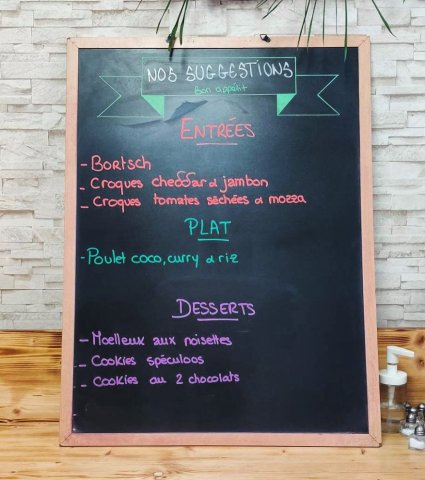 NOS SUGGESTIONS
Bon appétit
ENTRÉES
- Bortsch
- Croques cheddar & jambon
- Croques tomates séchées & mozza
PLAT
- Poulet coco, curry & riz
DESSERTS
- Moelleux aux noisettes
- Cookies spéculoos
- Cookies au 2 chocolats